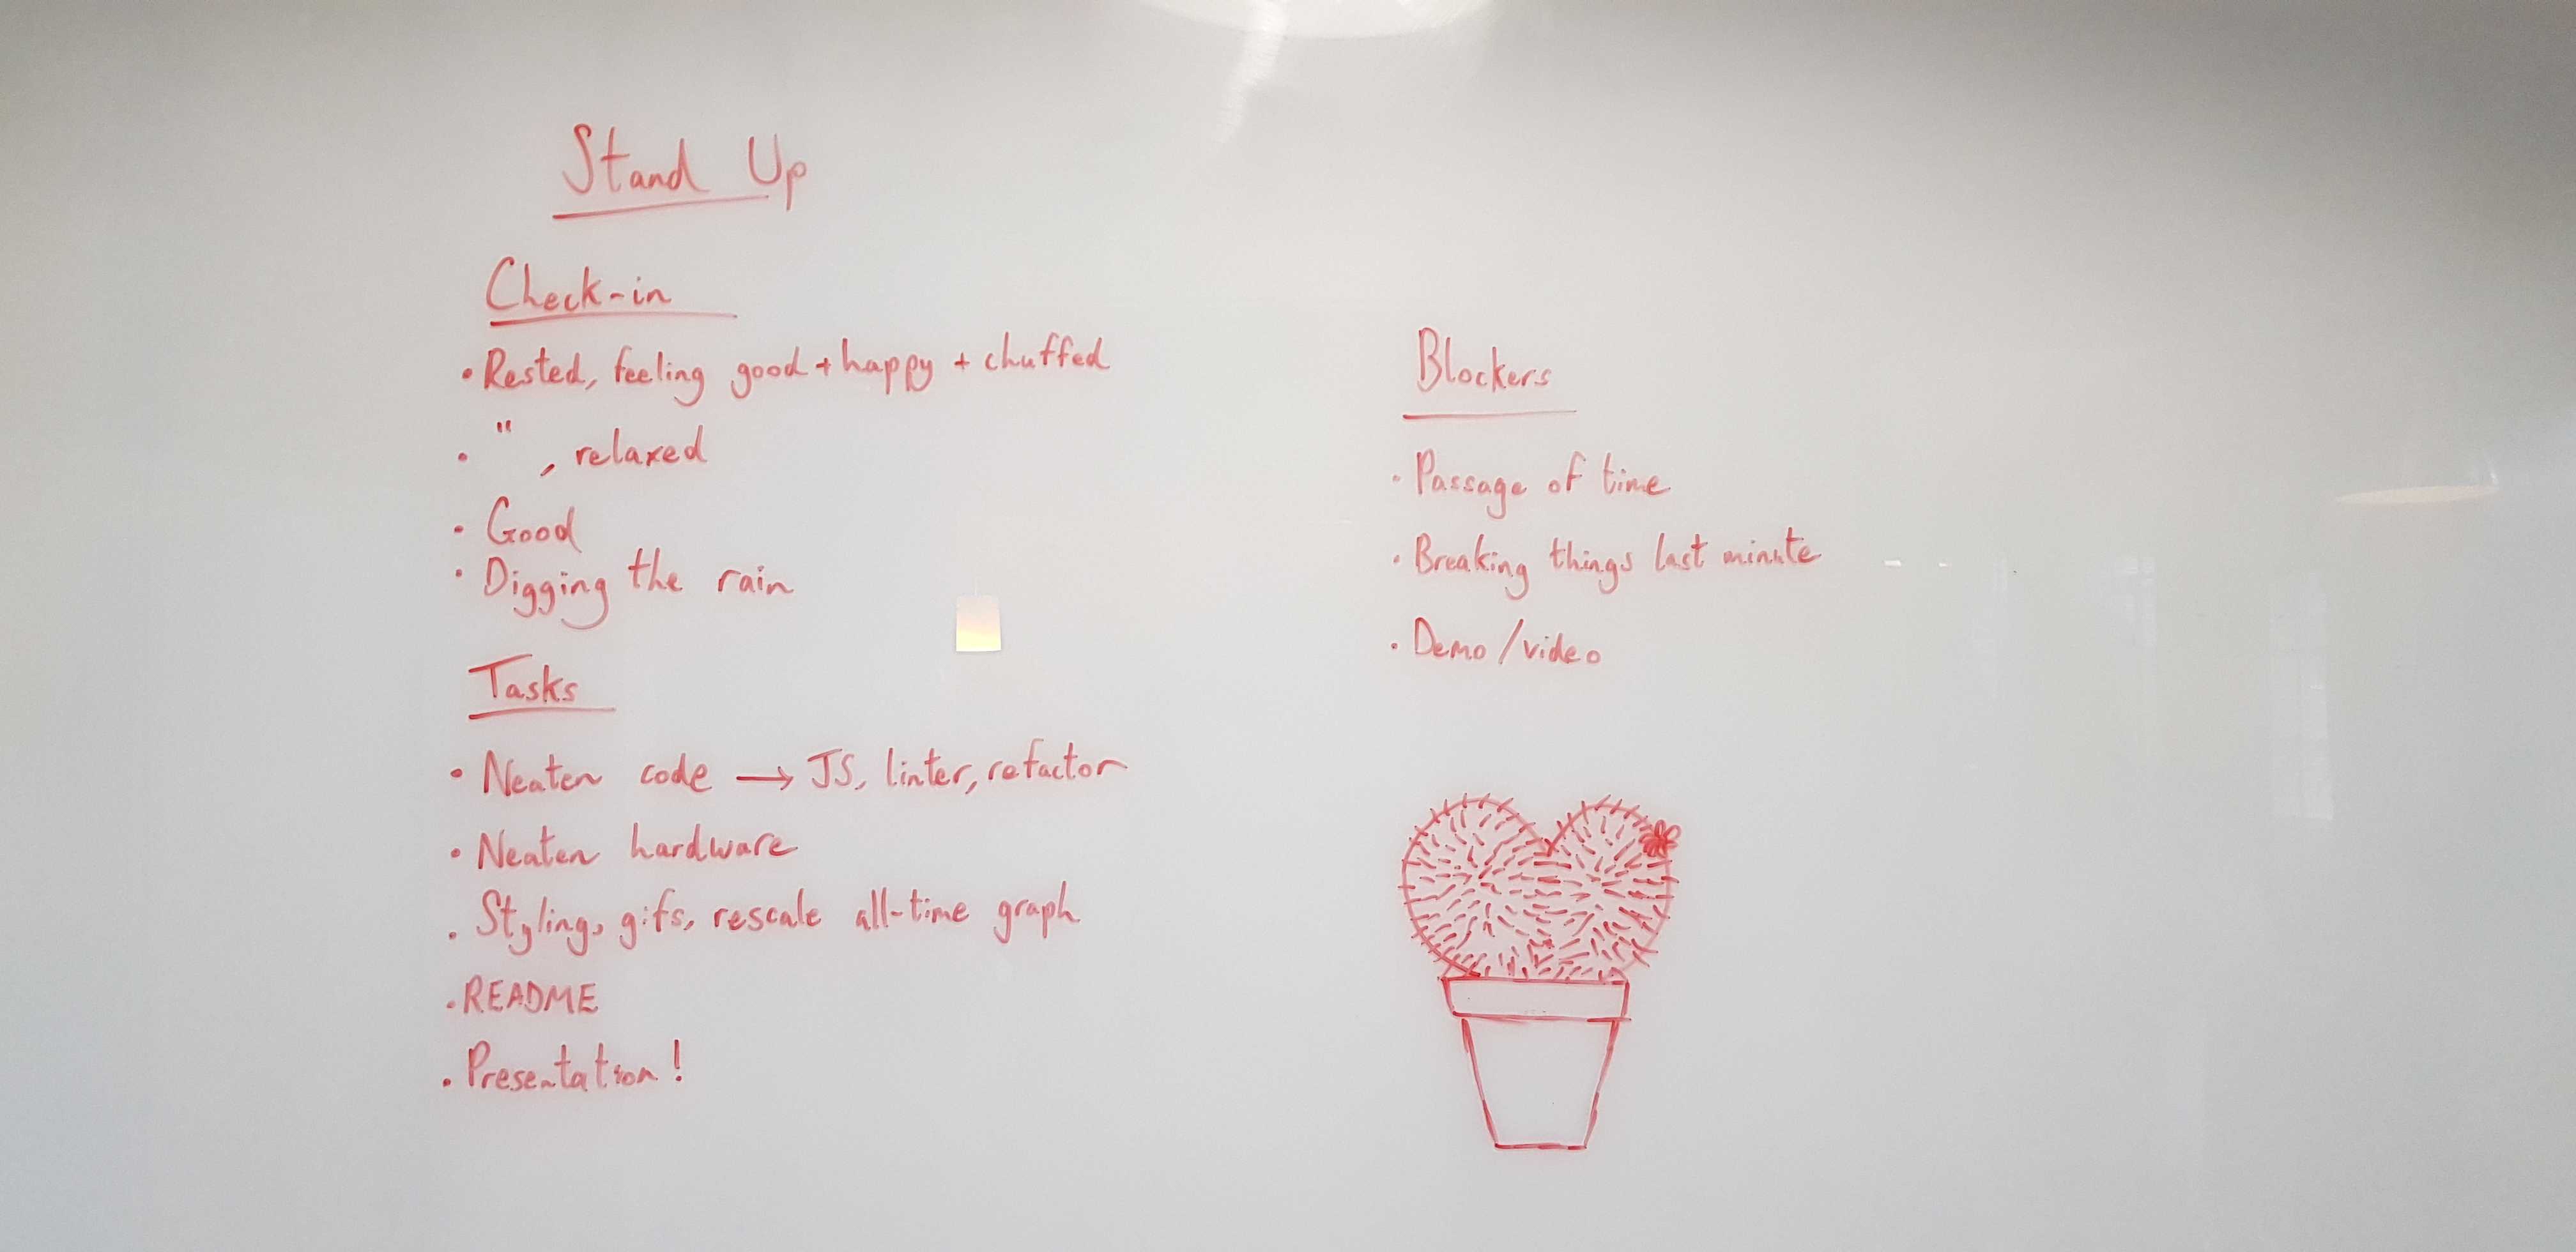 Stand Up
Check-in
• Rested, feeling good + happy + chuffed
• " , relaxed
• Good
• Digging the rain
Tasks
• Neaten code → JS, linter, refactor
• Neaten hardware
• Styling, gifs, rescale all-time graph
• README
• Presentation!
Blockers
• Passage of time
• Breaking things last minute
• Demo/video